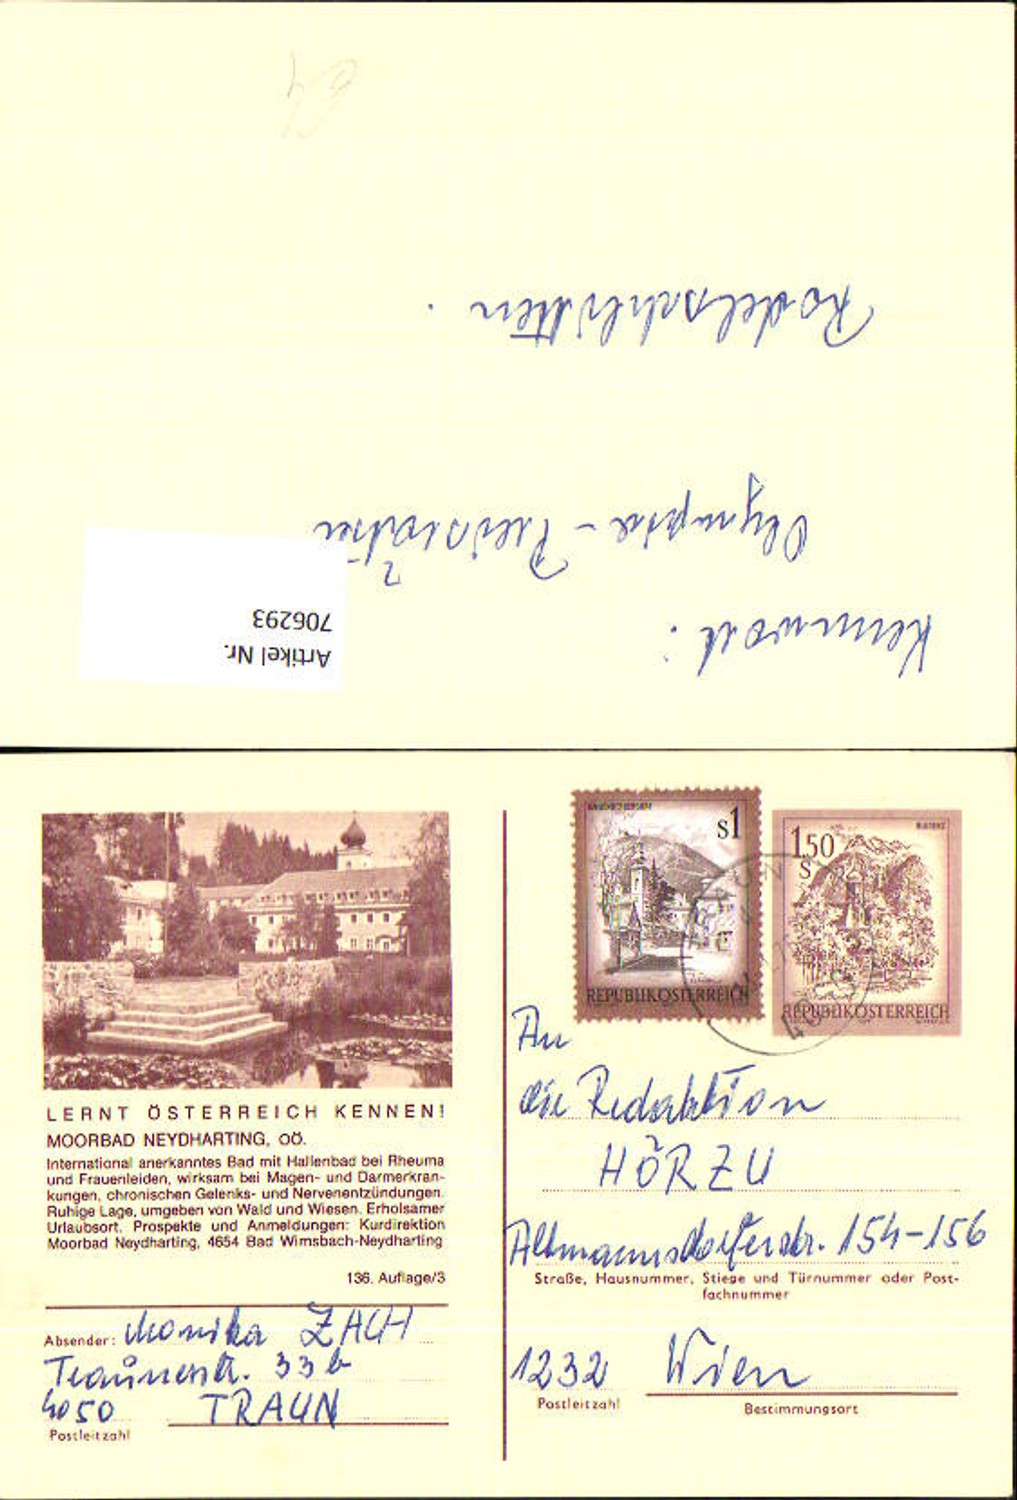 Kennwort:
Olympia - Preisrätsel
Rodelschlitten.
Artikel Nr.
706293
S1
REPUBLIK ÖSTERREICH
1.50
S
BLUDENZ
REPUBLIK ÖSTERREICH
LERNT ÖSTERREICH KENNEN!
MOORBAD NEYDHARTING, OÖ.
International anerkanntes Bad mit Hallenbad bei Rheuma
und Frauenleiden, wirksam bei Magen- und Darmerkran-
kungen, chronischen Gelenks- und Nervenentzündungen.
Ruhige Lage, umgeben von Wald und Wiesen. Erholsamer
Urlaubsort. Prospekte und Anmeldungen: Kurdirektion
Moorbad Neydharting, 4654 Bad Wimsbach-Neydharting
136. Auflage/3
Absender: Monika ZACH
Traunerstr. 33b
4050 TRAUN
Postleitzahl
An
die Redaktion
HÖRZU
Altmannsdorferstr. 154-156
Straße, Hausnummer, Stiege und Türnummer oder Post-
fachnummer
1232 Wien
Postleitzahl Bestimmungsort